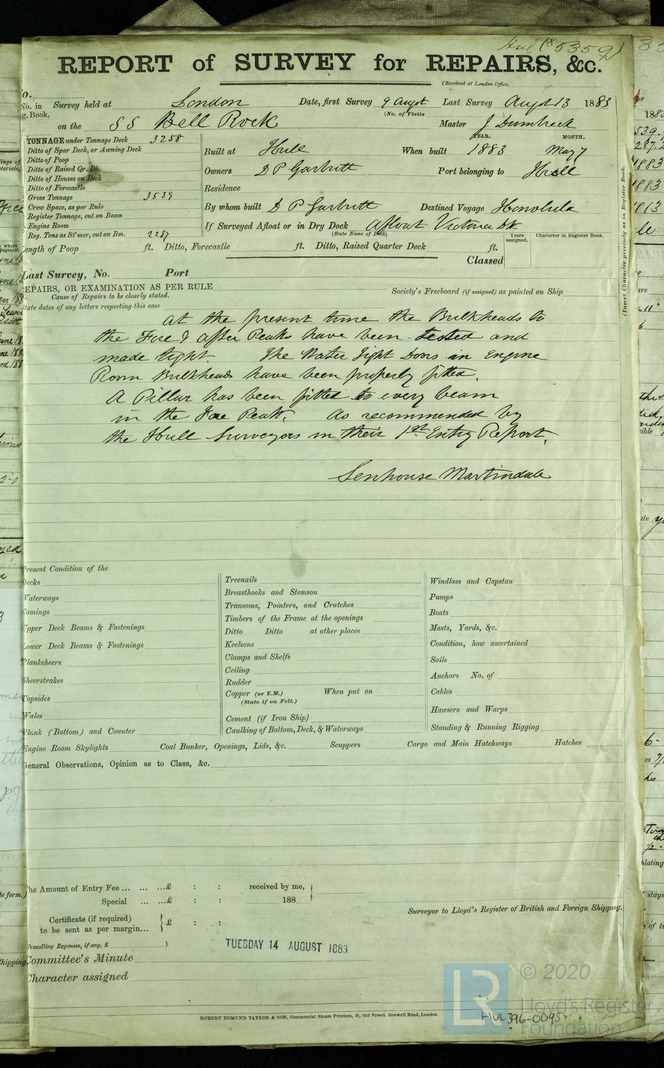 REPORT of SURVEY for REPAIRS, &c.
(Received at London Office,
No. in Survey held at London Date, first Survey 9 Augst Last Survey Augst 13 1883
g. Book. (No. of Visits
on the SS Bell Rock Master J Dumbreck
TONNAGE under Tonnage Deck 3258
Ditto of Spar Deck, or Awning Deck
Ditto of Poop
Ditto of Raised Qr. Dk.
Ditto of Houses on Deck
Ditto of Forecastle
Gross Tonnage 3539
Crew Space, as per Rule
Register Tonnage, cut on Beam
Engine Room
Reg. Tons as St'mer, cut on Bm. 2287
YEAR. MONTH.
Built at Hull When built 1883 May 7
Owners D P Garbutt Port belonging to Hull
Residence
By whom built D P Garbutt Destined Voyage Honolulu
If Surveyed Afloat or in Dry Dock Afloat Victoria Dk
(State Name of Dock)
Years assigned. Character in Register Book.
(Insert Character precisely as in Register Book.
Length of Poop ft. Ditto, Forecastle ft. Ditto, Raised Quarter Deck ft.
Classed
Last Survey, No. Port
REPAIRS, OR EXAMINATION AS PER RULE Society's Freeboard (if assigned) as painted on Ship
Cause of Repairs to be clearly stated.
State dates of any letters respecting this case
At the present time the Bulkheads to
the Fore & after Peaks have been tested and
made tight. The Water Tight Doors in Engine
Room Bulkheads have been properly fitted.
A Pillar has been fitted to every beam
in the Fore Peak. As recommended by
the Hull Surveyors in their 1st Entry Report.
Senhouse Martindale
Present Condition of the
Decks
Waterways
Comings
Upper Deck Beams & Fastenings
Lower Deck Beams & Fastenings
Planksheers
Sheerstrakes
Topsides
Wales
Plank (Bottom) and Counter
Treenails
Breasthooks and Stemson
Transoms, Pointers, and Crutches
Timbers of the Frame at the openings
Ditto Ditto at other places
Keelsons
Clamps and Shelfs
Ceiling
Rudder
Copper (or Y.M.) When put on
(State if on Felt.)
Cement (if Iron Ship)
Caulking of Bottom, Deck, & Waterways
Windlass and Capstan
Pumps
Boats
Masts, Yards, &c.
Condition, how ascertained
Sails
Anchors No. of
Cables
Hawsers and Warps
Standing & Running Rigging
Engine Room Skylights Coal Bunker, Openings, Lids, &c. Scuppers Cargo and Main Hatchways Hatches
General Observations, Opinion as to Class, &c.
The Amount of Entry Fee ... ... ...£ : : received by me,
Special ... ...£ : : 188
Certificate (if required) to be sent as per margin... £ : :
Travelling Expenses, if any, £ )
Surveyor to Lloyd's Register of British and Foreign Shipping.
TUESDAY 14 AUGUST 1883
Committee's Minute
Character assigned
ROBERT EDMUND TAYLOR & SON, Commercial Steam Printers, 19, Old Street, Goswell Road, London.
LR © 2020
Lloyd's Register
Foundation
HUL396-0095